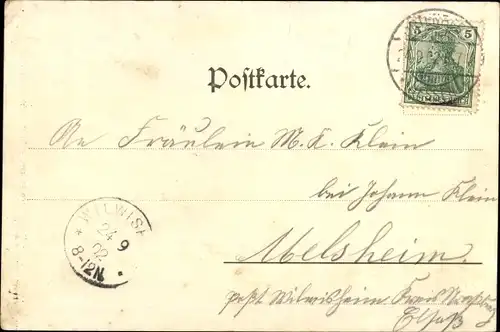 5 5
Postkarte.
An Fräulein M. K. Klein
bei Johann Klein
Melsheim.
post Wilwisheim Kreis
Elsaß
WILWISH
24 9
02
8-12N